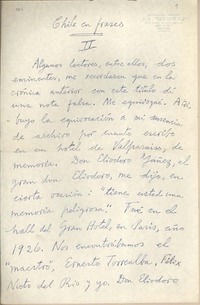 Chile en frases
II
Algunos lectores, entre ellos, dos
eminentes, me recordaron que en la
crónica anterior con este título di
una nota falsa. Me equivoqué. Atri-
buyo la equivocación a mi ausencia
de archivo por cuanto escribo
en un hotel de Valparaíso, de
memoria. Don Eliodoro Yáñez, el
gran don Eliodoro, me dijo, en
cierta ocasión: "tiene usted una
memoria peligrosa". Fué en el
hall del Gran Hotel, en París, año
1926. Nos encontrábamos el
"maestro", Ernesto Torrealba, Félix
Nieto del Río y yo. Don Eliodoro